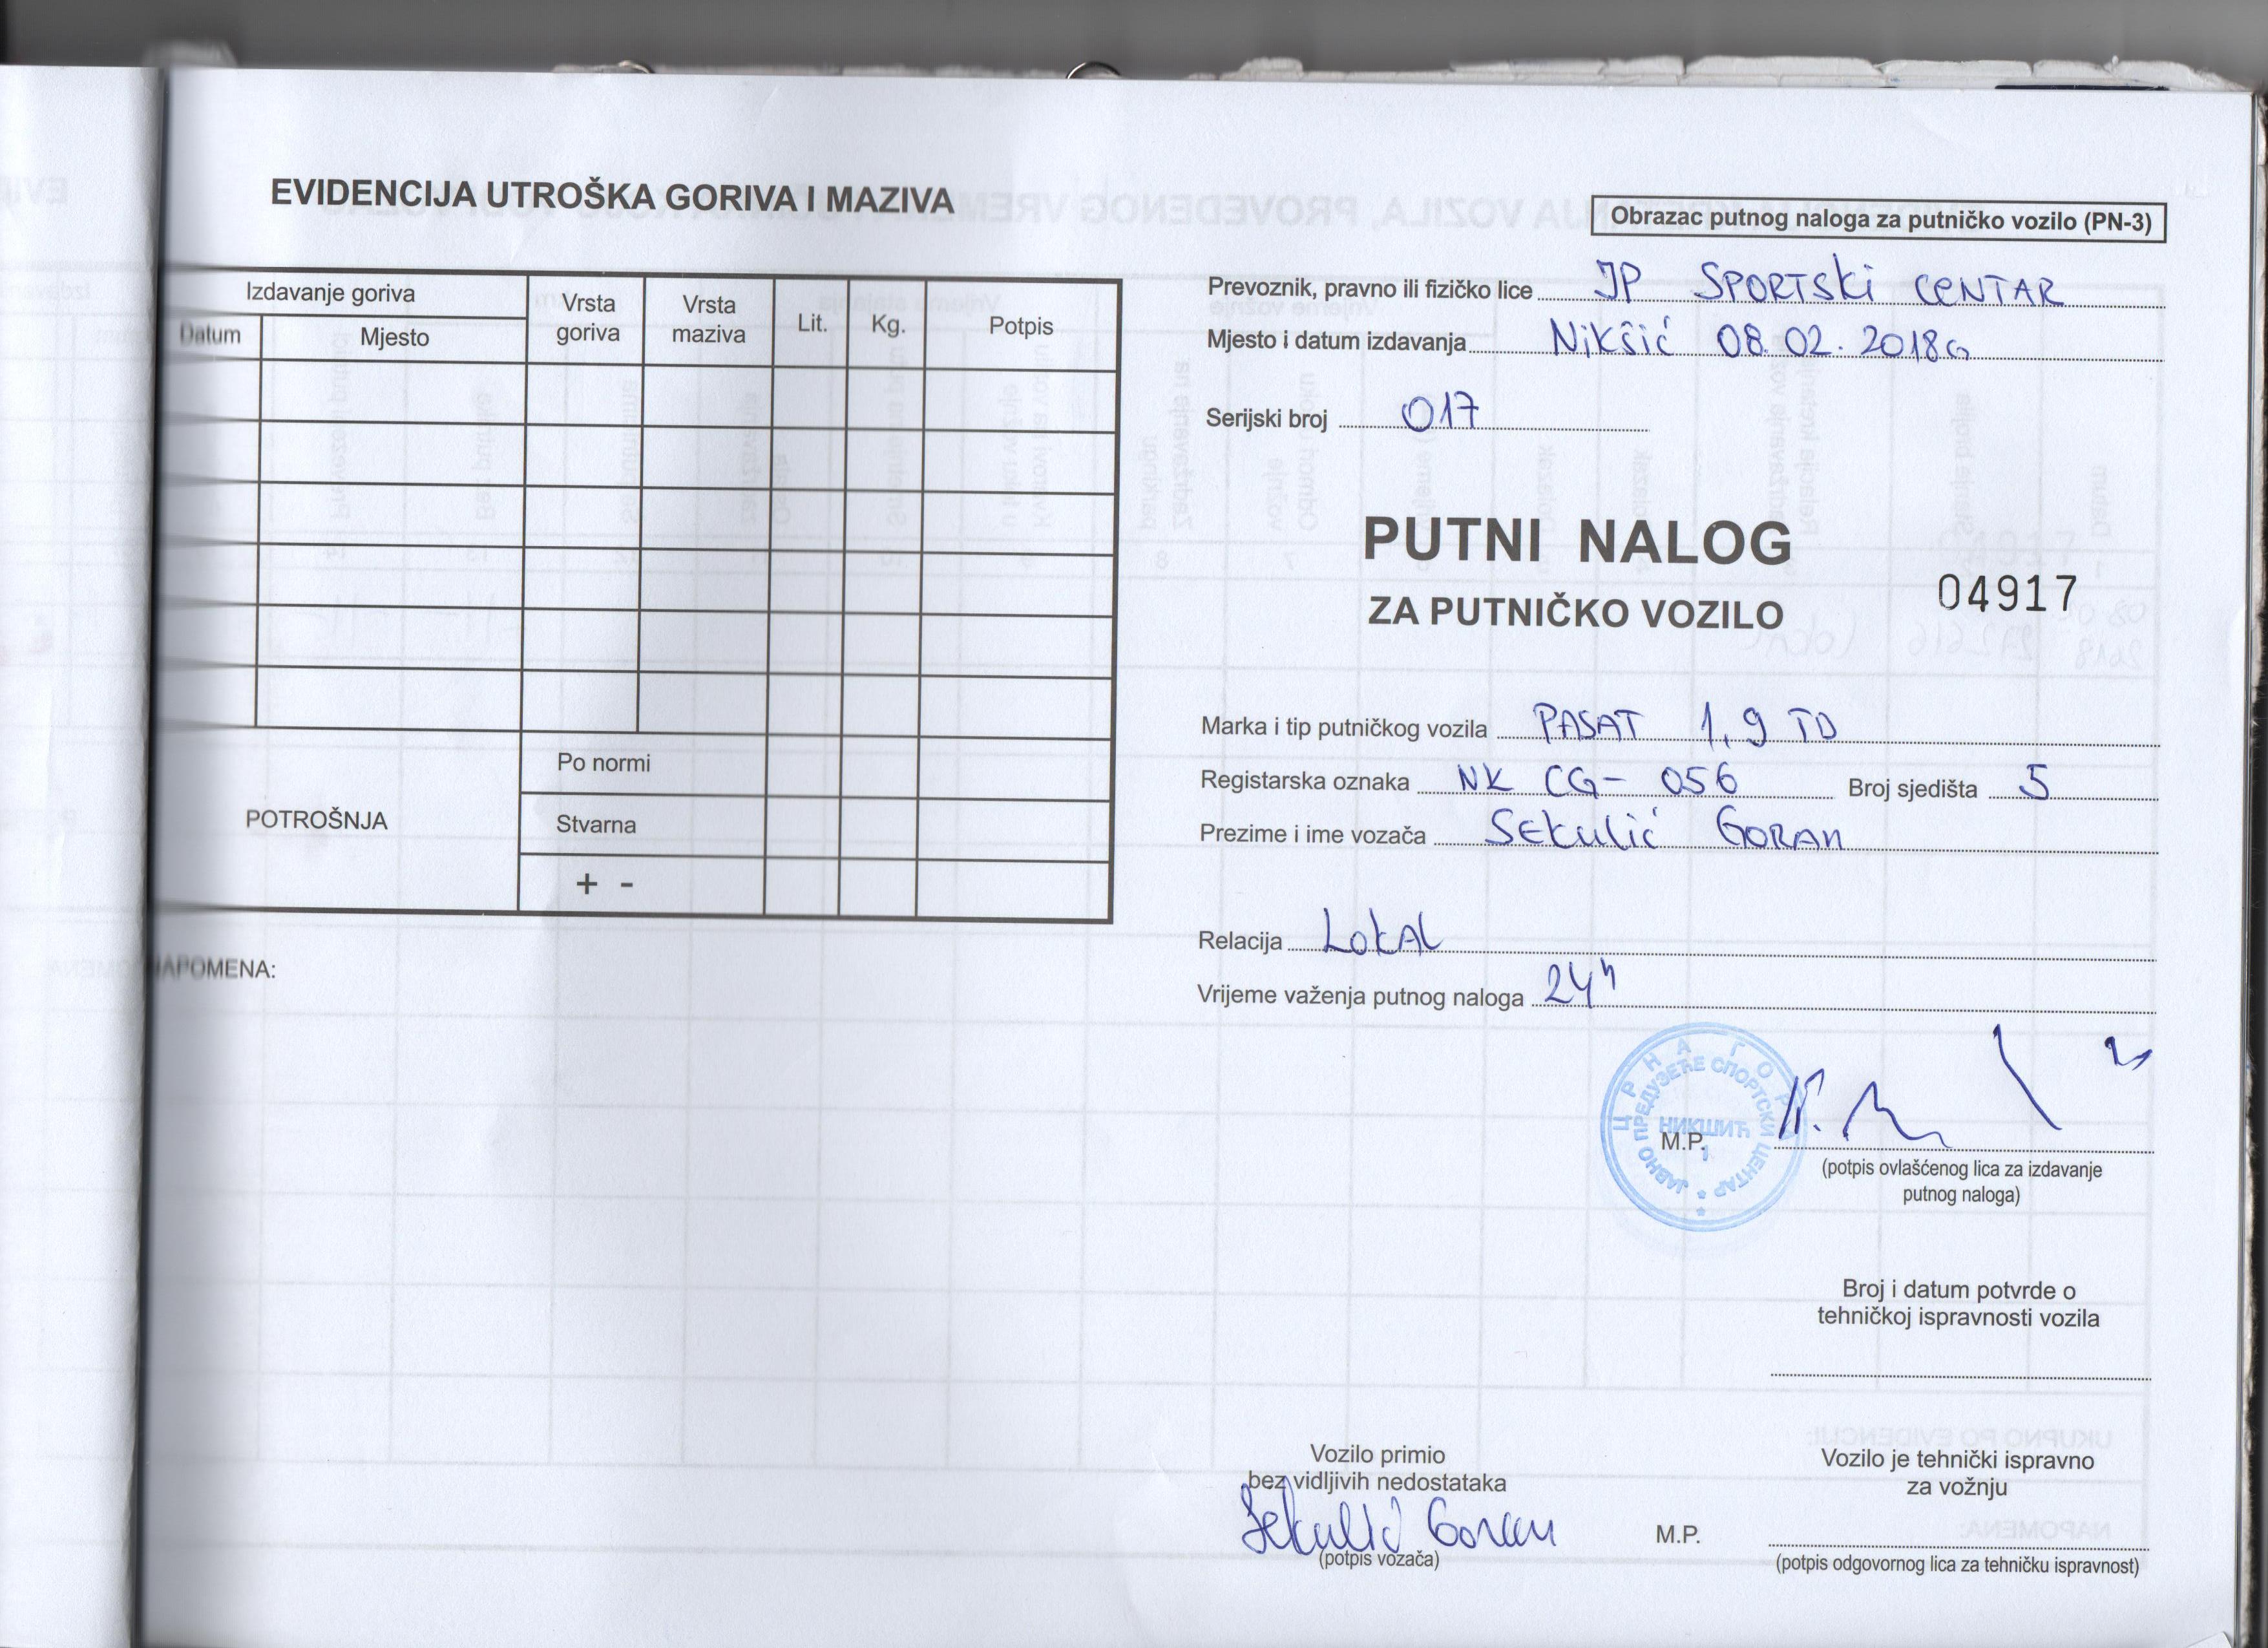 EVIDENCIJA UTROŠKA GORIVA I MAZIVA
Izdavanje goriva
Datum
Mjesto
Vrsta goriva
Vrsta maziva
Lit.
Kg.
Potpis
POTROŠNJA
Po normi
Stvarna
+ -
NAPOMENA:
Obrazac putnog naloga za putničko vozilo (PN-3)
Prevoznik, pravno ili fizičko lice JP SPORTSKI CENTAR
Mjesto i datum izdavanja Nikšić 08.02.2018G
Serijski broj 017
PUTNI NALOG
ZA PUTNIČKO VOZILO
04917
Marka i tip putničkog vozila PASAT 1,9 TD
Registarska oznaka NK CG-056 Broj sjedišta 5
Prezime i ime vozača Sekulić Goran
Relacija Lokal
Vrijeme važenja putnog naloga 24h
ЦРНА ГОРА
ЈАВНО ПРЕДУЗЕЋЕ СПОРТСКИ ЦЕНТАР
НИКШИЋ
1
M.P.
(potpis ovlašćenog lica za izdavanje
putnog naloga)
Broj i datum potvrde o
tehničkoj ispravnosti vozila
Vozilo primio
bez vidljivih nedostataka
Sekulić Goran
(potpis vozača)
Vozilo je tehnički ispravno
za vožnju
M.P.
(potpis odgovornog lica za tehničku ispravnost)